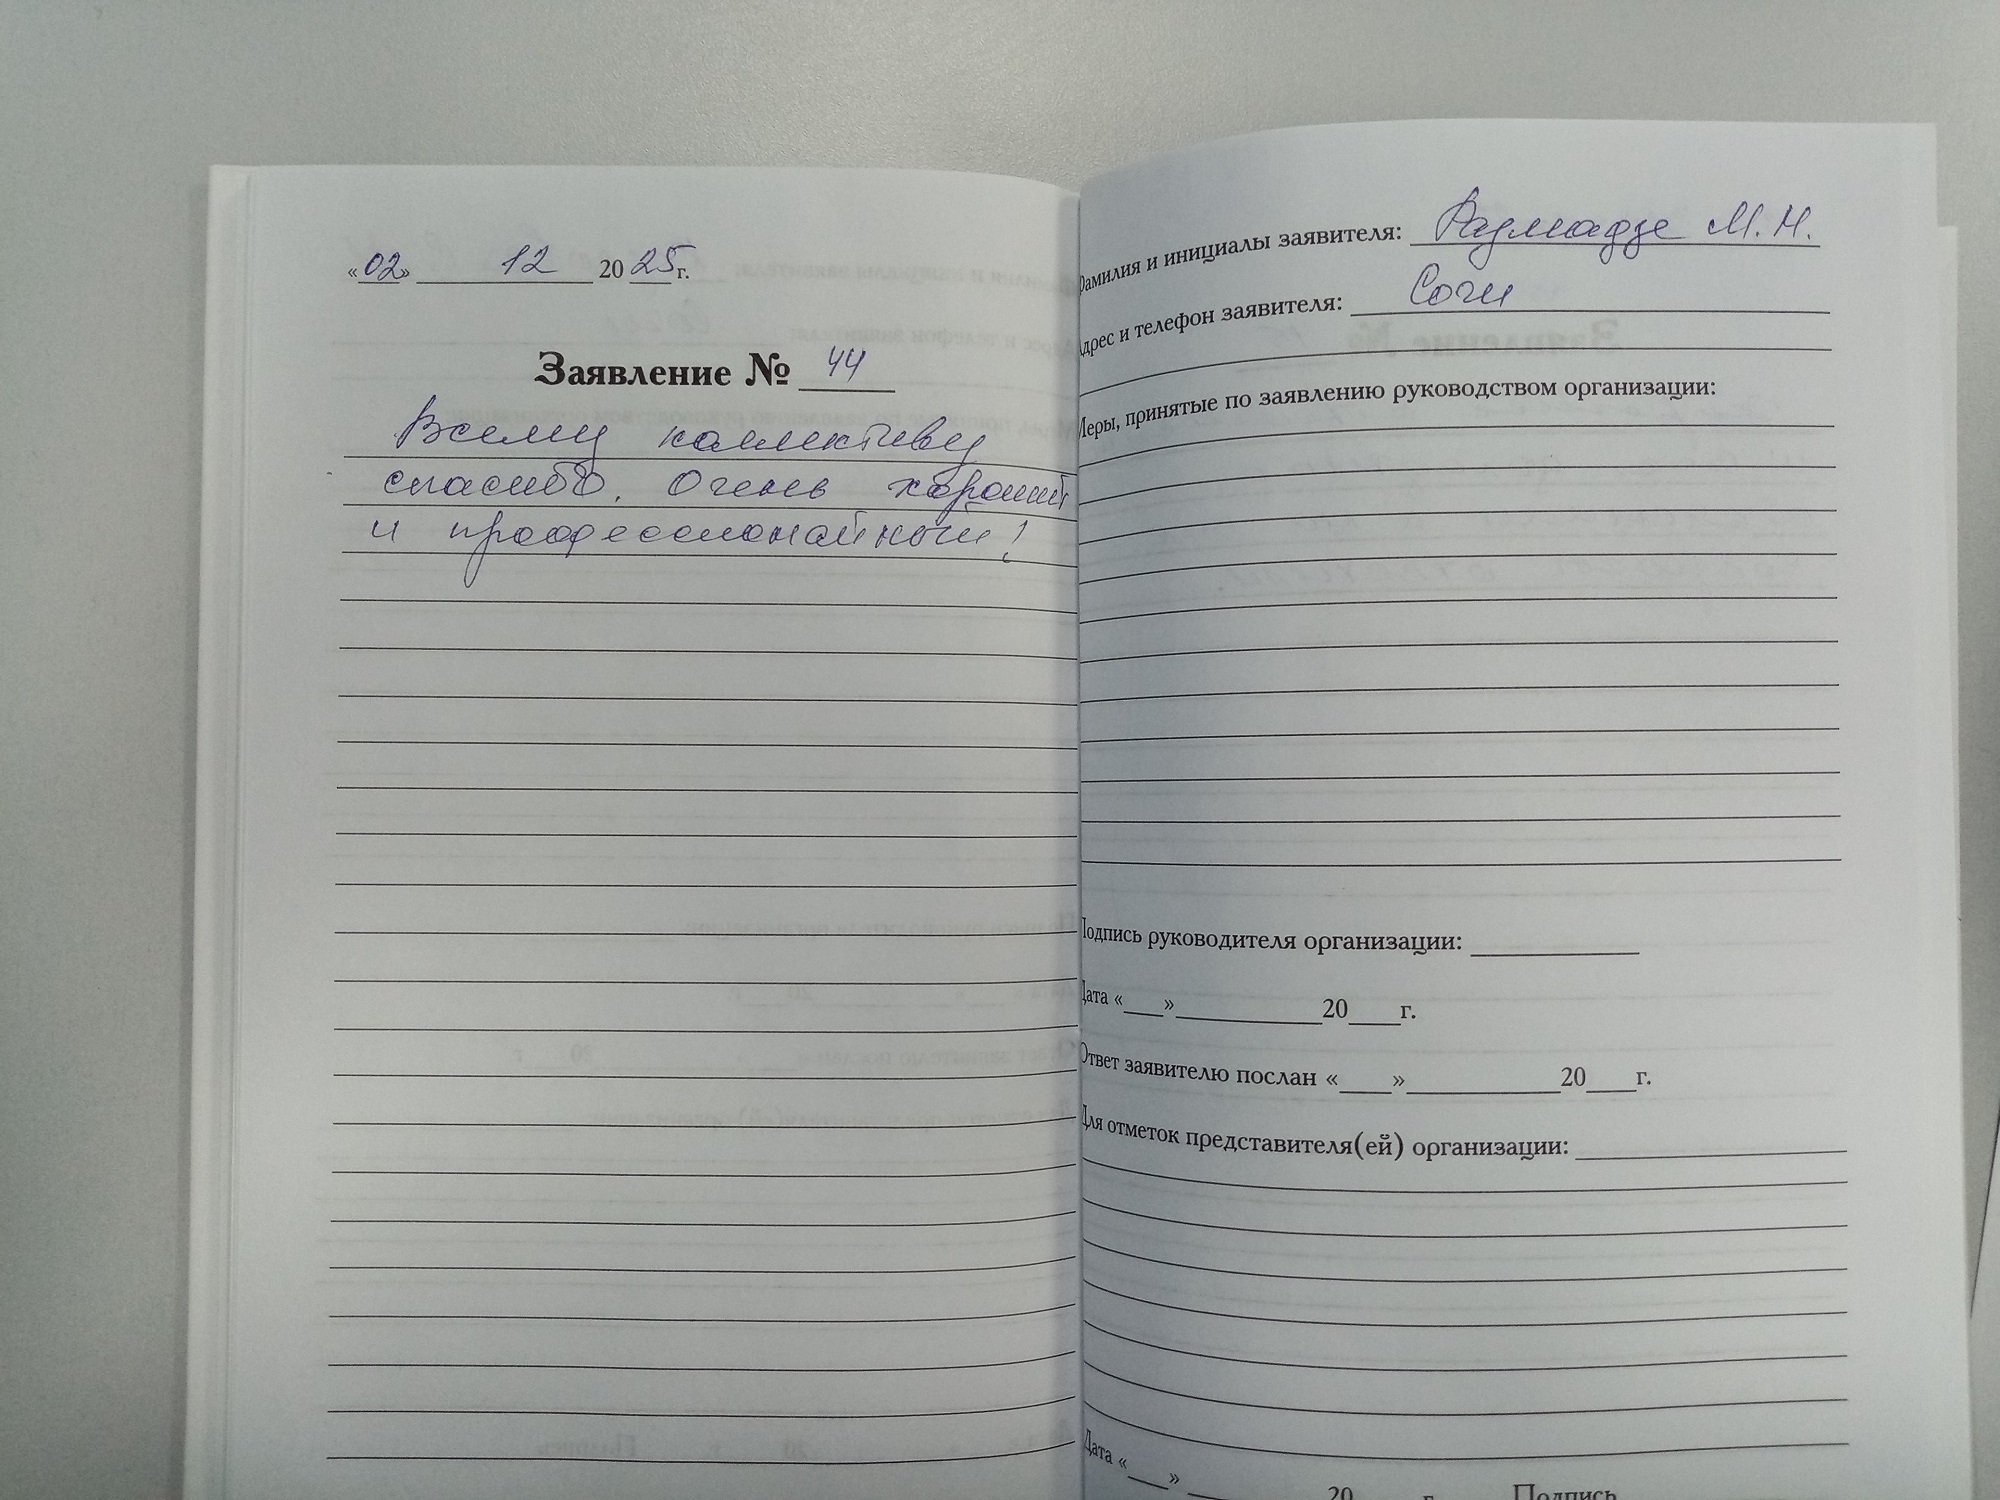 «02» 12 2025г.
Заявление № 44
Всему коллективу
спасибо. Очень хороший
и профессиональный!
Фамилия и инициалы заявителя: Размадзе М.Н.
Адрес и телефон заявителя: Сочи
Меры, принятые по заявлению руководством организации:
Подпись руководителя организации:
Дата «___» 20___г.
Ответ заявителю послан «___» 20___г.
Для отметок представителя(ей) организации:
Дата «___» 20___г. Подпись